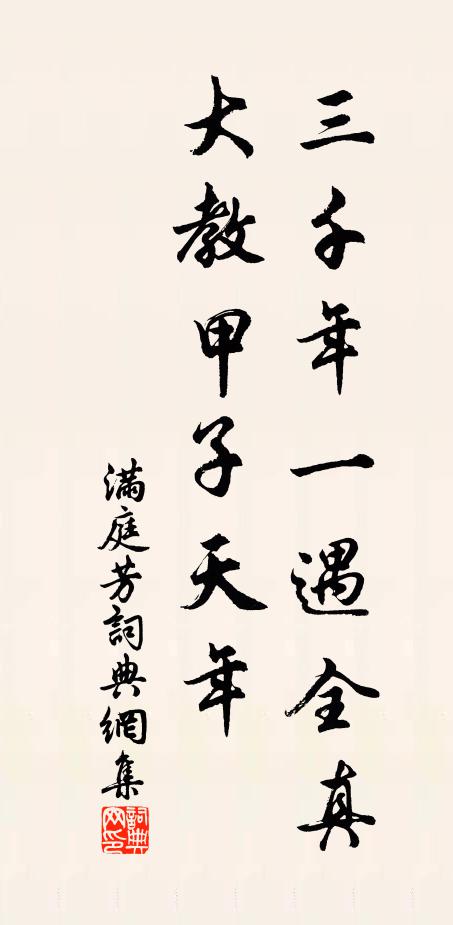 三千年一遇全真
大教甲子天年
滿庭芳詞典網集
詞典網印